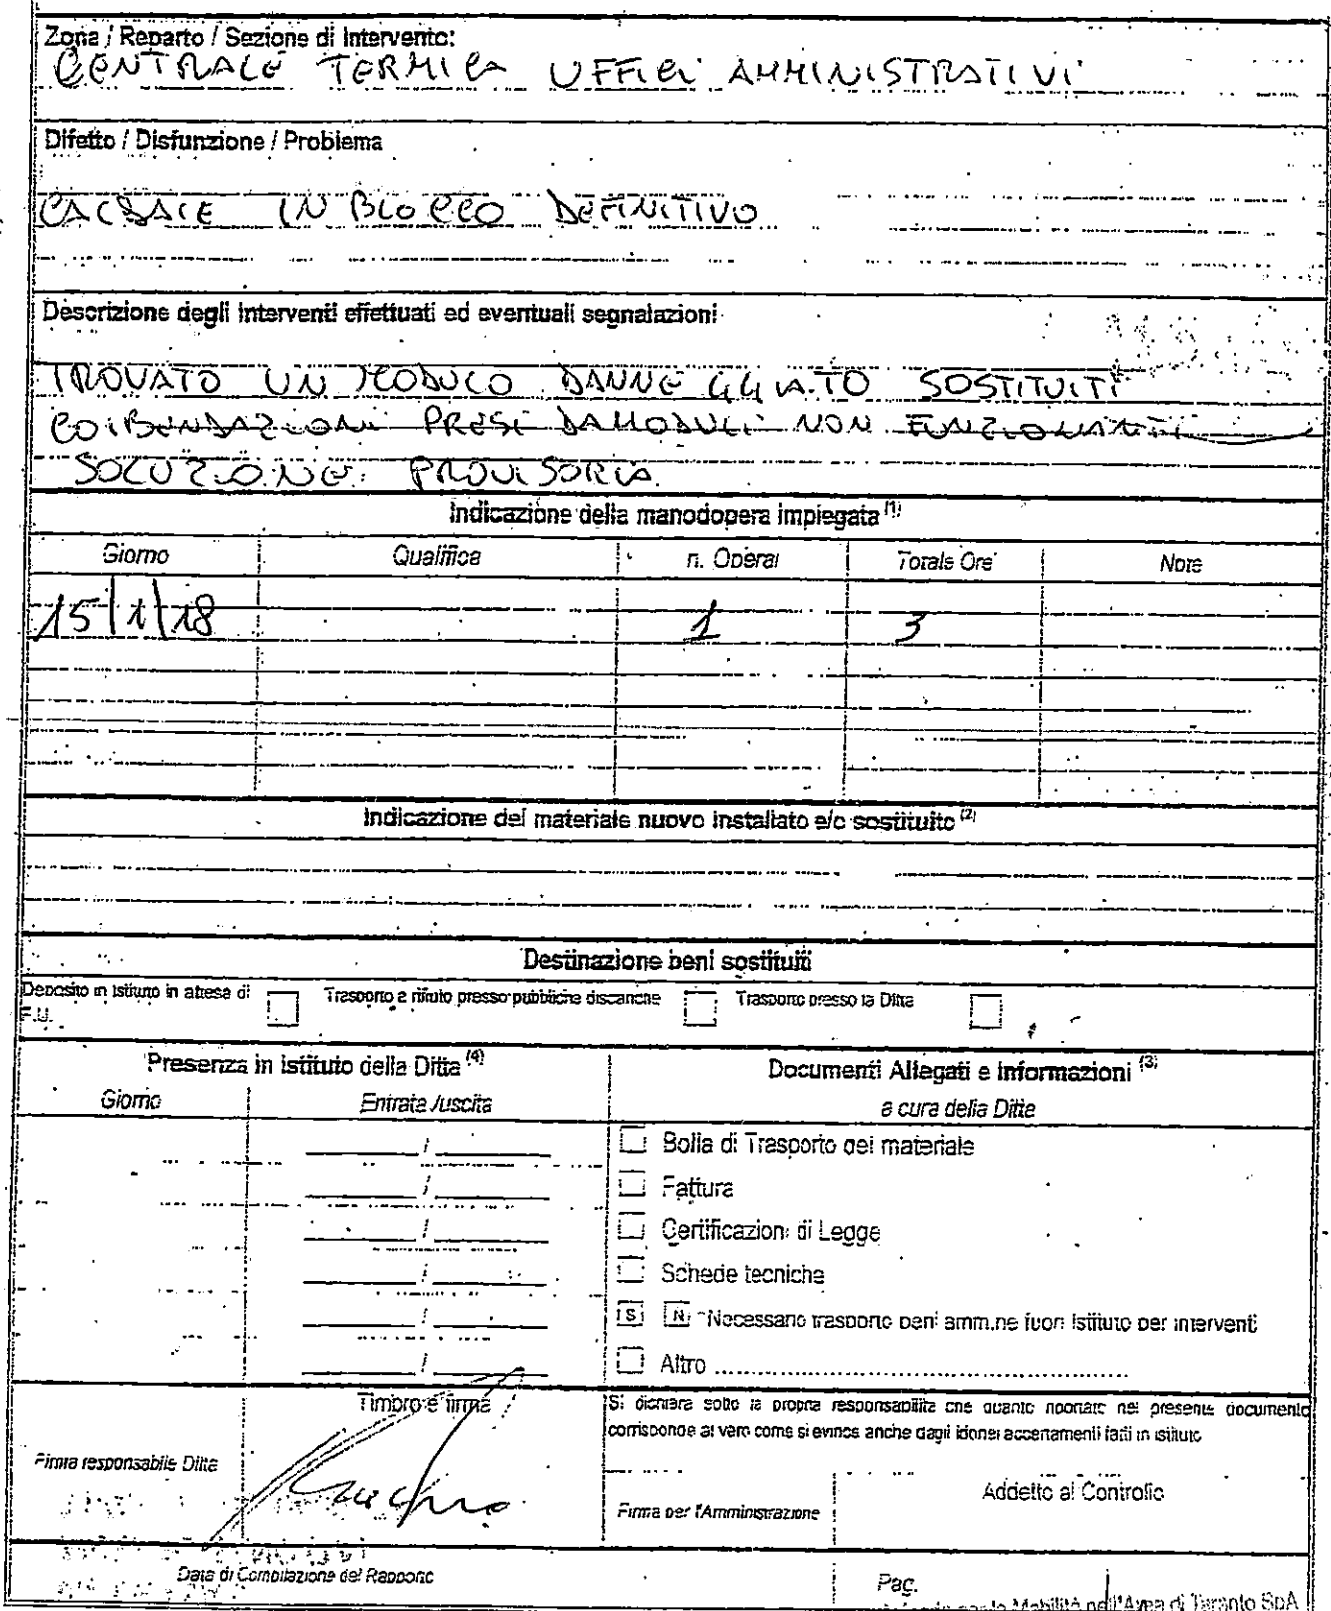 Zona / Reparto / Sezione di Intervento:
CENTRALE TERMICA UFFICI AMMINISTRATIVI
Difetto / Disfunzione / Problema
CALDAIE IN BLOCCO DEFINITIVO
Descrizione degli interventi effettuati ed eventuali segnalazioni
TROVATO UN MODULO DANNEGGIATO SOSTITUITI
COIBENDAZIONI PRESI DA MODULI NON FUNZIONANTI
SOLUZIONE PROVISORIA
Indicazione della manodopera impiegata (1)
Giorno Qualifica n. Operai Totale Ore Note
15/1/18 1 3
Indicazione del materiale nuovo installato e/o sostituito (2)
Destinazione beni sostituiti
Deposito in Istituto in attesa di F.U. Trasporto a rifiuto presso pubbliche discariche Trasporto presso la Ditta
Presenza in istituto della Ditta (4) Documenti Allegati e informazioni (3)
Giorno Entrata /uscita a cura della Ditta
/ Bolla di Trasporto del materiale
/ Fattura
/ Certificazioni di Legge
/ Schede tecniche
/ S N Necessario trasporto beni amm.ne fuori Istituto per interventi
/ Altro
Timbro e firma Si dichiara sotto la propria responsabilità che quanto riportato nel presente documento
corrisponde al vero come si evince anche dagli idonei accertamenti fatti in istituto
Firma responsabile Ditta
Firma per l'Amministrazione Addetto al Controllo
Data di Compilazione del Rapporto Pag.
per la Mobilità nell'Area di Taranto SpA